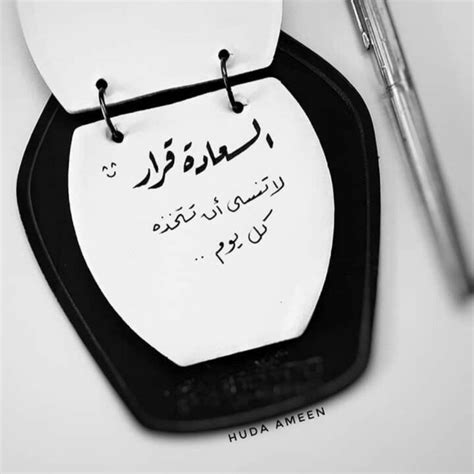 السعادة قرار
لا تنسى أن تتخذه
كل يوم ..
HUDA AMEEN